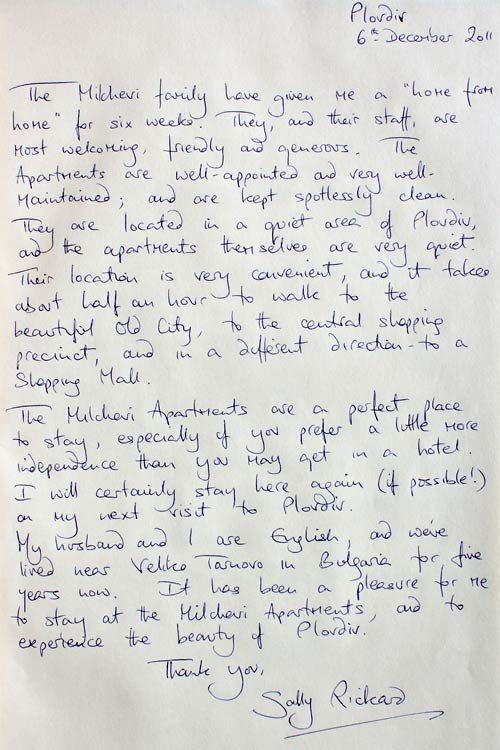 Plovdiv
6th December 2011
The Milchevi family have given me a "home from
home" for six weeks. They, and their staff, are
most welcoming, friendly and generous. The
Apartments are well-appointed and very well-
maintained; and are kept spotlessly clean.
They are located in a quiet area of Plovdiv,
and the apartments themselves are very quiet.
Their location is very convenient, and it takes
about half an hour to walk to the
beautiful Old City, to the central shopping
precinct, and in a different direction - to a
Shopping Mall.
The Milchevi Apartments are a perfect place
to stay, especially if you prefer a little more
independence than you may get in a hotel.
I will certainly stay here again (if possible!)
on my next visit to Plovdiv.
My husband and I are English, and we've
lived near Veliko Tarnovo in Bulgaria for five
years now. It has been a pleasure for me
to stay at the Milchevi Apartments, and to
experience the beauty of Plovdiv.
Thank you,
Sally Rickard